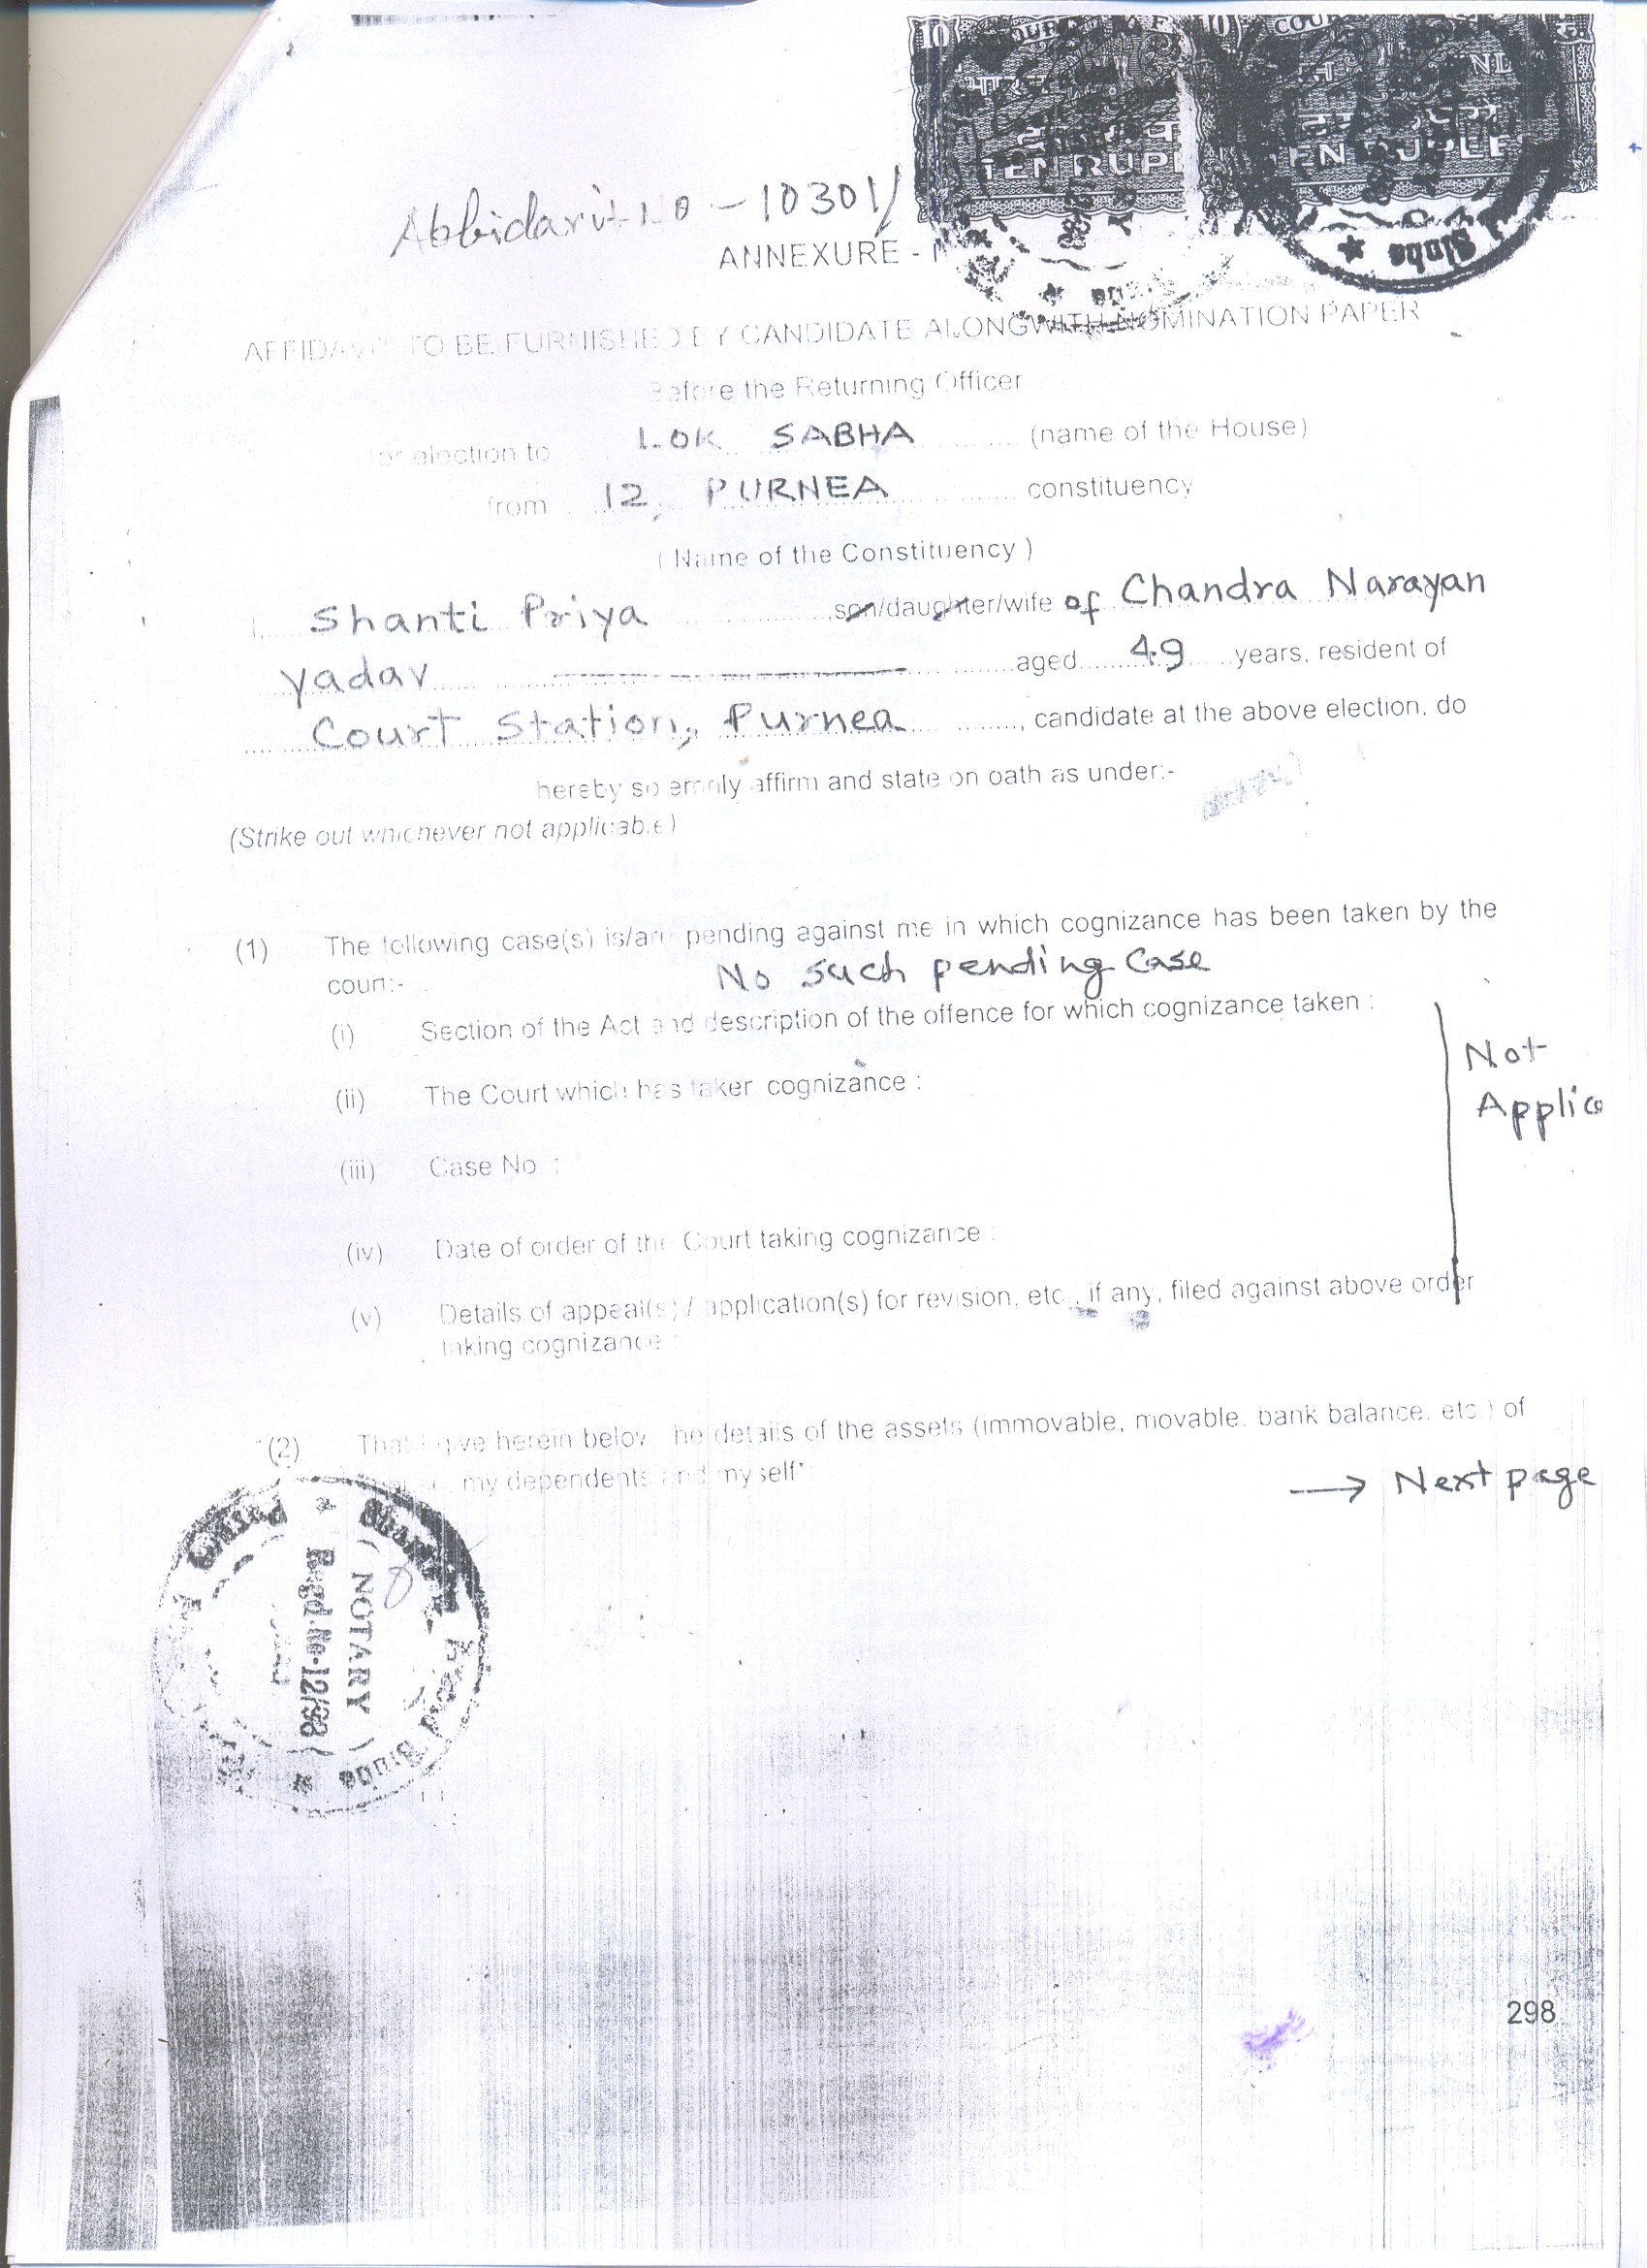 10 COUR F 10 COU
TEN RUPE TEN RUPEE
No - 10301/
ANNEXURE -
AFFIDAVIT TO BE FURNISHED BY CANDIDATE ALONGWITH NOMINATION PAPER
Before the Returning Officer
for election to LOK SABHA (name of the House)
from 12, PURNEA constituency
( Name of the Constituency )
I, Shanti Priya son/daughter/wife of Chandra Narayan
Yadav aged 49 years, resident of
Court Station, Purnea, candidate at the above election, do
hereby solemnly affirm and state on oath as under:-
(Strike out whichever not applicable)
(1) The following case(s) is/are pending against me in which cognizance has been taken by the
court:- No such pending Case
(i) Section of the Act and description of the offence for which cognizance taken :
Not
Applica
(ii) The Court which has taken cognizance :
(iii) Case No. :
(iv) Date of order of the Court taking cognizance :
(v) Details of appeal(s) / application(s) for revision, etc., if any, filed against above order
taking cognizance :
(2) That I give herein below the details of the assets (immovable, movable, bank balance, etc.) of
my dependents and myself*
→ Next page
( NOTARY )
Regd. No-12/98
298